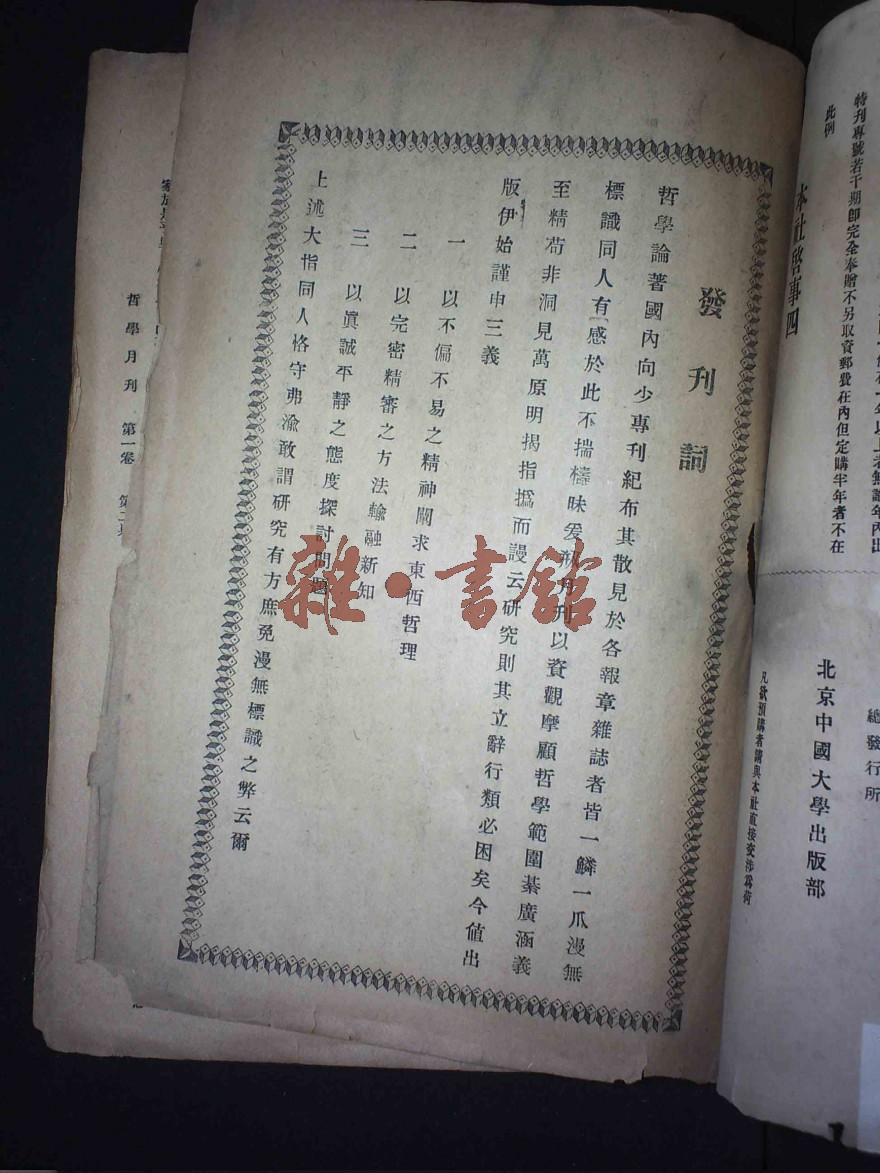 特刊專號若干期即完全奉贈不另取資郵費在內但定購半年者不在
此例
本社啓事四
凡欲預購者請與本社直接交涉爲荷
總發行所
北京中國大學出版部
發刊詞
哲學論著國內向少專刊紀布其散見於各報章雜誌者皆一鱗一爪漫無
標識同人有感於此不揣檮昧爰 月刊以資觀摩顧哲學範圍綦廣涵義
至精苟非洞見萬原明揭指撝而謾云研究則其立辭行類必困矣今値出
版伊始謹申三義
一 以不偏不易之精神闡求東西哲理
二 以完密精審之方法輸融新知
三 以眞誠平靜之態度探討問題
上述大指同人恪守弗渝敢謂研究有方庶免漫無標識之弊云爾
哲學月刊 第一卷
雜·書館